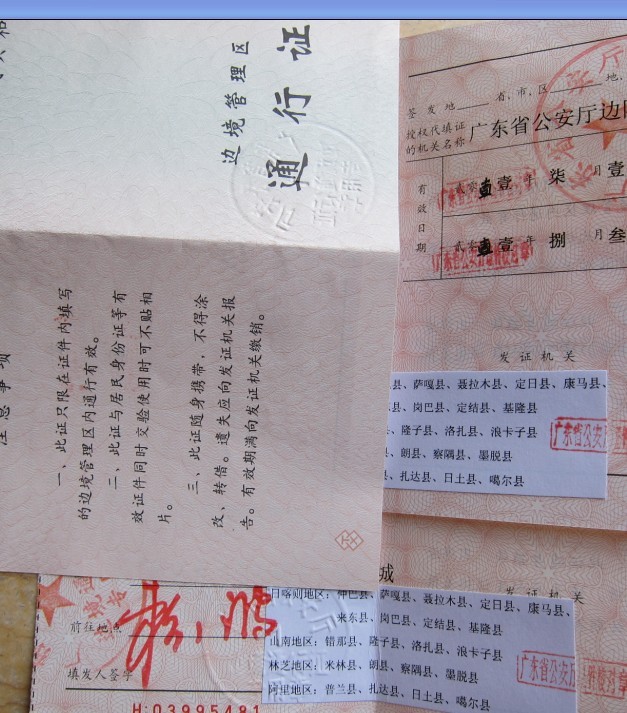 边境管理区
通行证
注意事项
一、此证只限在证件内填写
的边境管理区内通行有效。
二、此证与居民身份证等有
效证件同时交验使用时可不贴相
片。
三、此证随身携带，不得涂
改、转借。遗失应向发证机关报
告。有效期满向发证机关缴销。
签发地 省,市,区 地,
授权代填证
的机关名称 广东省公安厅边
有效日期 贰零壹壹年 柒 月壹
贰零壹壹年 捌 月叁
发证机关
县、萨嘎县、聂拉木县、定日县、康马县、
县、岗巴县、定结县、基隆县
、隆子县、洛扎县、浪卡子县
、朗县、察隅县、墨脱县
、扎达县、日土县、噶尔县
广东省公安厅
城
发证机关
前往地点
填发人签字
H:03995481
日喀则地区：仲巴县、萨嘎县、聂拉木县、定日县、康马县、
来东县、岗巴县、定结县、基隆县
山南地区：错那县、隆子县、洛扎县、浪卡子县
林芝地区：米林县、朗县、察隅县、墨脱县
阿里地区：普兰县、扎达县、日土县、噶尔县
广东省公安厅